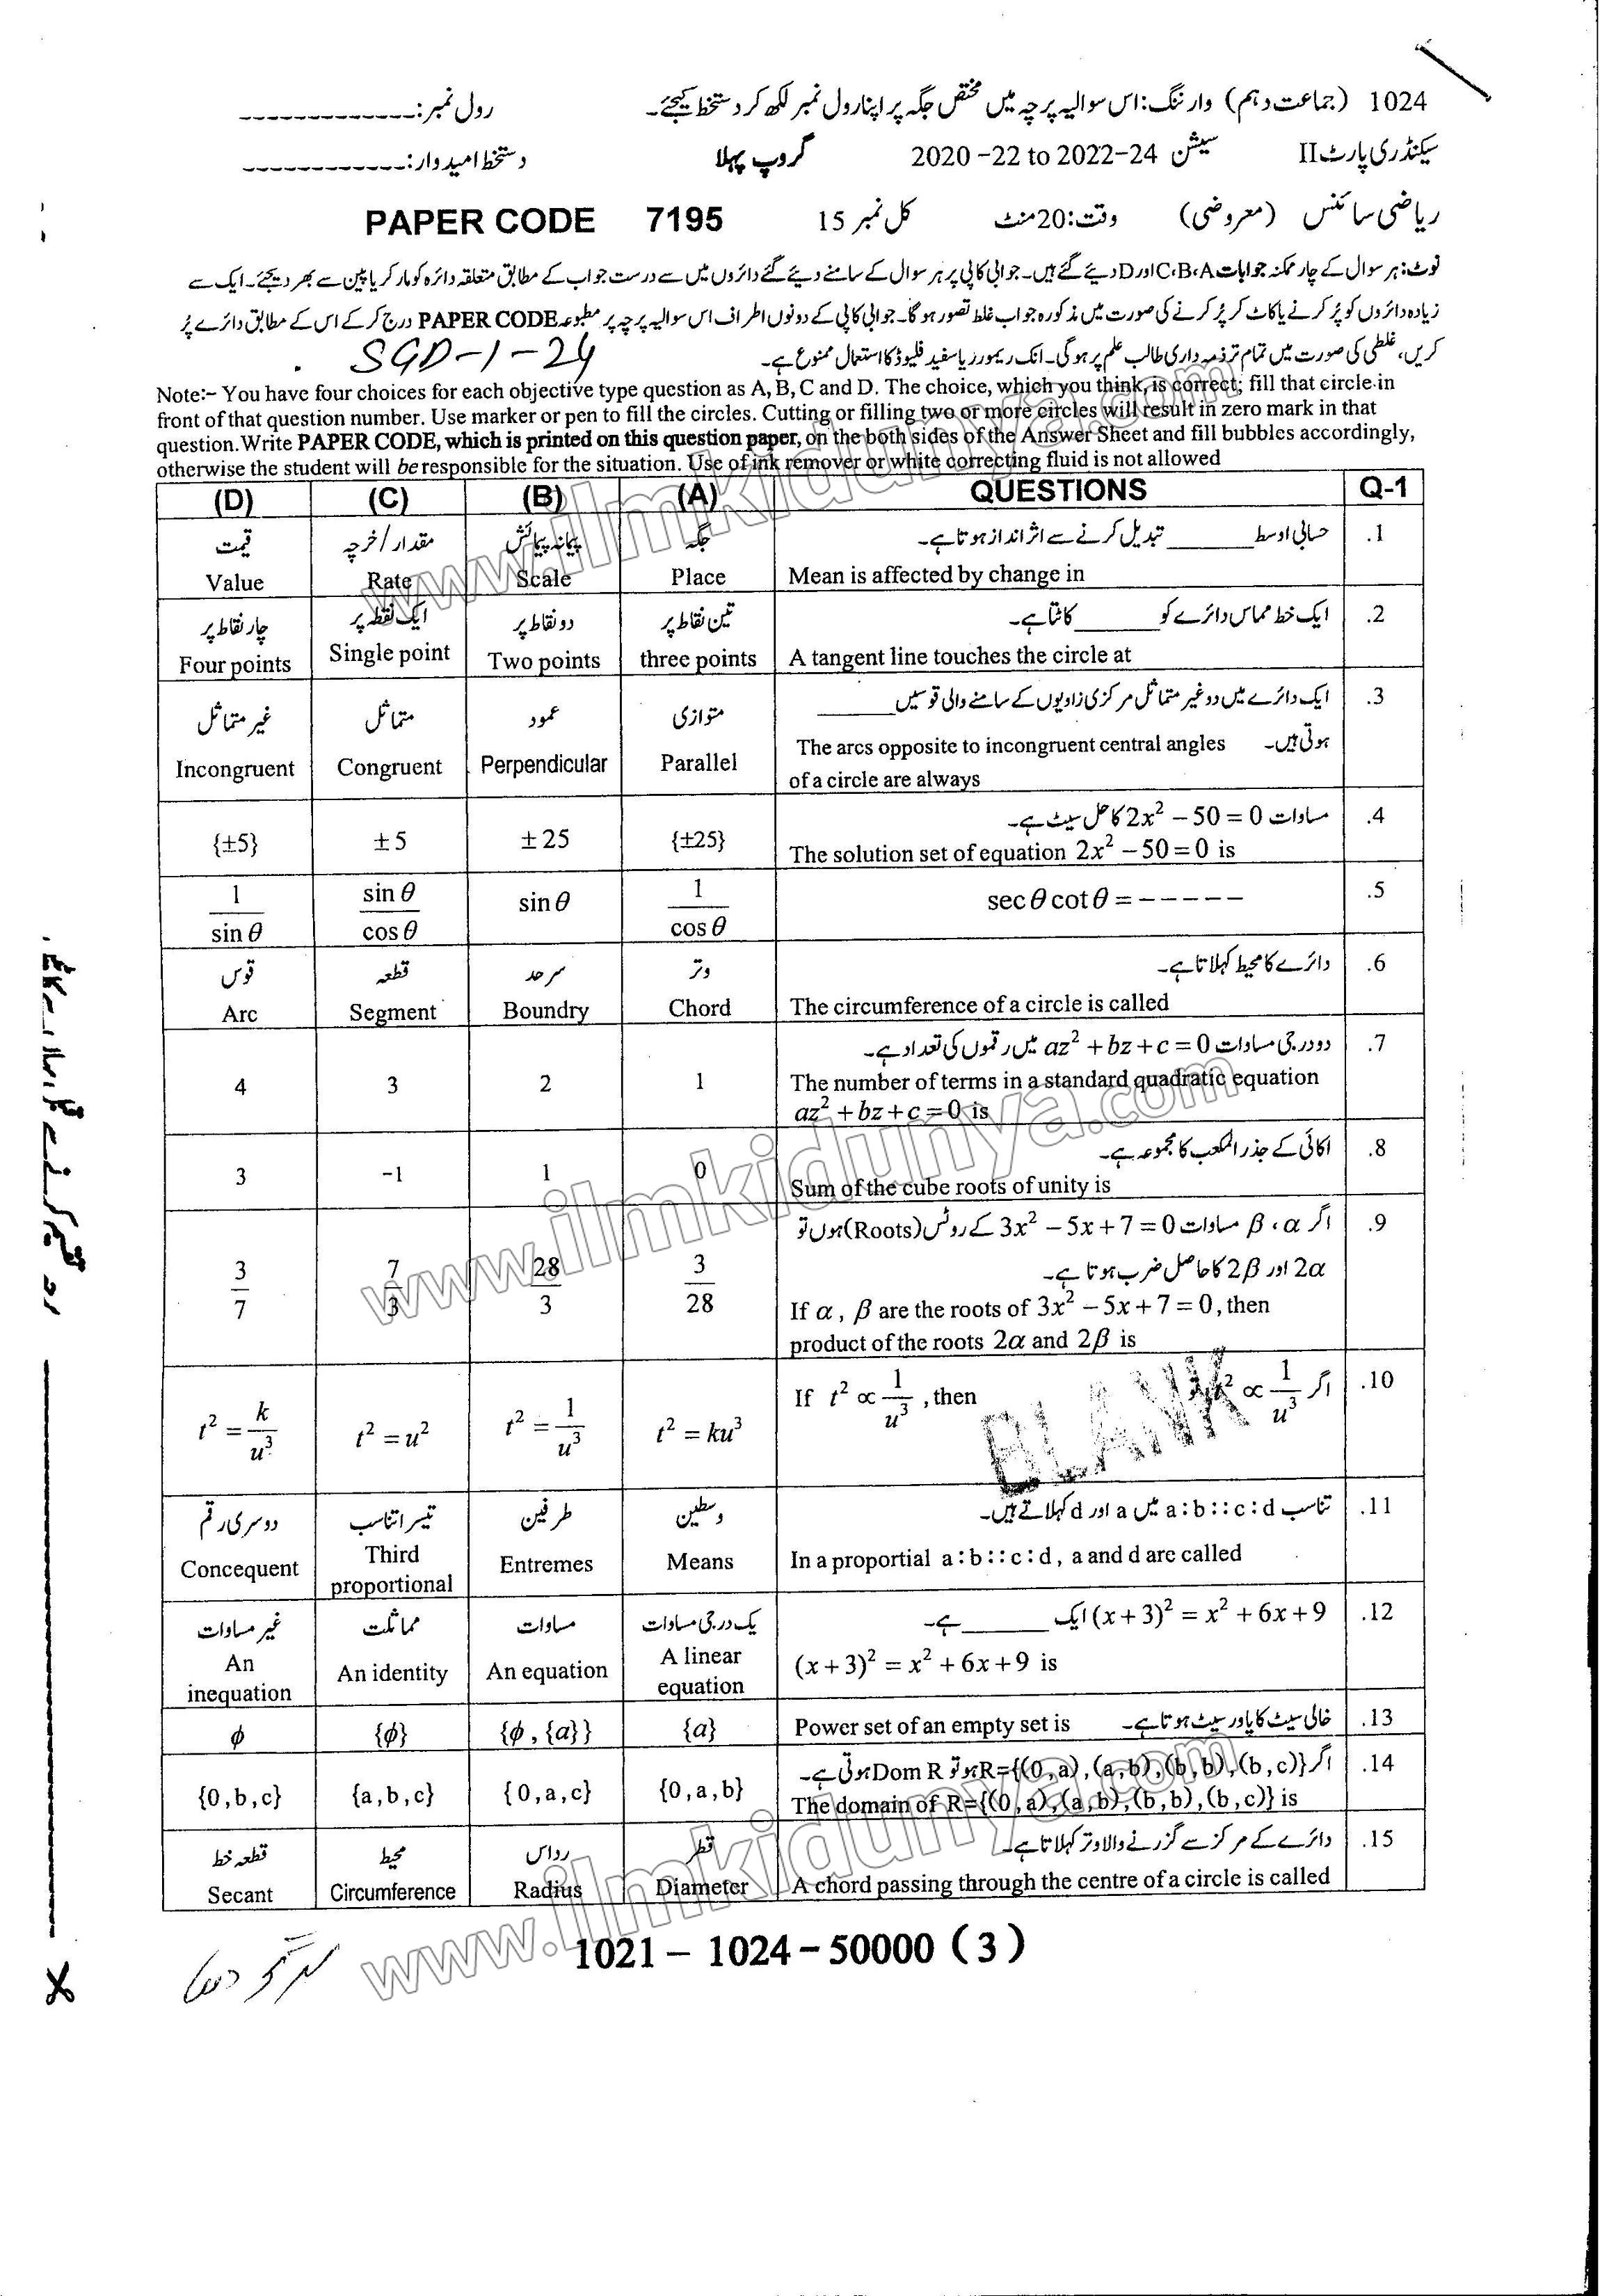 1024 (جماعت دہم) وارننگ: اس سوالیہ پرچہ میں مختص جگہ پر اپنا رول نمبر لکھ کر دستخط کیجئے۔ رول نمبر: -------------
سیکنڈری پارٹ II سیشن 2020-22 to 2022-24 گروپ پہلا دستخط امیدوار: ------------
ریاضی سائنس (معروضی) وقت: 20 منٹ کل نمبر 15 PAPER CODE 7195
نوٹ: ہر سوال کے چار ممکنہ جوابات A،B،C اور D دیئے گئے ہیں۔ جوابی کاپی پر ہر سوال کے سامنے دیئے گئے دائروں میں سے درست جواب کے مطابق متعلقہ دائرہ کو مارکر یا پین سے بھر دیجئے۔ ایک سے
زیادہ دائروں کو پُر کرنے یا کاٹ کر پُر کرنے کی صورت میں مذکورہ جواب غلط تصور ہوگا۔ جوابی کاپی کے دونوں اطراف اس سوالیہ پرچہ پر مطبوعہ PAPER CODE درج کر کے اس کے مطابق دائرے پُر
کریں، غلطی کی صورت میں تمام تر ذمہ داری طالب علم پر ہوگی۔ انک ریمور یا سفید فلیوڈ کا استعمال ممنوع ہے۔ SGD-1-24
Note:- You have four choices for each objective type question as A, B, C and D. The choice, which you think, is correct; fill that circle in
front of that question number. Use marker or pen to fill the circles. Cutting or filling two or more circles will result in zero mark in that
question. Write PAPER CODE, which is printed on this question paper, on the both sides of the Answer Sheet and fill bubbles accordingly,
otherwise the student will be responsible for the situation. Use of ink remover or white correcting fluid is not allowed
(D) (C) (B) (A) QUESTIONS Q-1
قیمت مقدار/خرچہ پیمانہ پیمائش جگہ حسابی اوسط ______ تبدیل کرنے سے اثر انداز ہوتا ہے۔ .1
Value Rate Scale Place Mean is affected by change in
چار نقاط پر ایک نقطہ پر دو نقاط پر تین نقاط پر ایک خط مماس دائرے کو ______ کاٹتا ہے۔ .2
Four points Single point Two points three points A tangent line touches the circle at
غیر متماثل متماثل عمود متوازی ایک دائرے میں دو غیر متماثل مرکزی زاویوں کے سامنے والی قوسیں ______ .3
Incongruent Congruent Perpendicular Parallel The arcs opposite to incongruent central angles ہوتی ہیں۔
of a circle are always
مساوات 2x² – 50 = 0 کا حل سیٹ ہے۔ .4
{±5} ±5 ±25 {±25} The solution set of equation 2x² – 50 = 0 is
1/sin θ sin θ/cos θ sin θ 1/cos θ sec θ cot θ = ----- .5
قوس قطعہ سرحد وتر دائرے کا محیط کہلاتا ہے۔ .6
Arc Segment Boundry Chord The circumference of a circle is called
دو درجی مساوات az² + bz + c = 0 میں رقموں کی تعداد ہے۔ .7
4 3 2 1 The number of terms in a standard quadratic equation
az² + bz + c = 0 is
اکائی کے جذر المکعب کا مجموعہ ہے۔ .8
3 -1 1 0 Sum of the cube roots of unity is
اگر α ، β مساوات 3x² – 5x + 7 = 0 کے روٹس (Roots) ہوں تو .9
2α اور 2β کا حاصل ضرب ہوتا ہے۔
3/7 7/3 28/3 3/28 If α , β are the roots of 3x² – 5x + 7 = 0, then
product of the roots 2α and 2β is
If t² ∝ 1/u³ , then اگر t² ∝ 1/u³ .10
t² = k/u³ t² = u² t² = 1/u³ t² = ku³
BLANK
دوسری رقم تیسرا تناسب طرفین وسطین تناسب a : b : : c : d میں a اور d کہلاتے ہیں۔ .11
Concequent Third proportional Entremes Means In a proportial a : b : : c : d , a and d are called
غیر مساوات مماثلت مساوات یک درجی مساوات (x + 3)² = x² + 6x + 9 ایک ______ ہے۔ .12
An inequation An identity An equation A linear equation (x + 3)² = x² + 6x + 9 is
ϕ {ϕ} {ϕ , {a}} {a} Power set of an empty set is خالی سیٹ کا پاور سیٹ ہوتا ہے۔ .13
اگر R={(0,a),(a,b),(b,b),(b,c)} ہو تو Dom R ہوتی ہے۔ .14
{0,b,c} {a,b,c} {0,a,c} {0,a,b} The domain of R={(0,a),(a,b),(b,b),(b,c)} is
قطعہ خط محیط رداس قطر دائرے کے مرکز سے گزرنے والا وتر کہلاتا ہے۔ .15
Secant Circumference Radius Diameter A chord passing through the centre of a circle is called
1021 – 1024 – 50000 ( 3 )
www.ilmkidunya.com
www.ilmkidunya.com
www.ilmkidunya.com